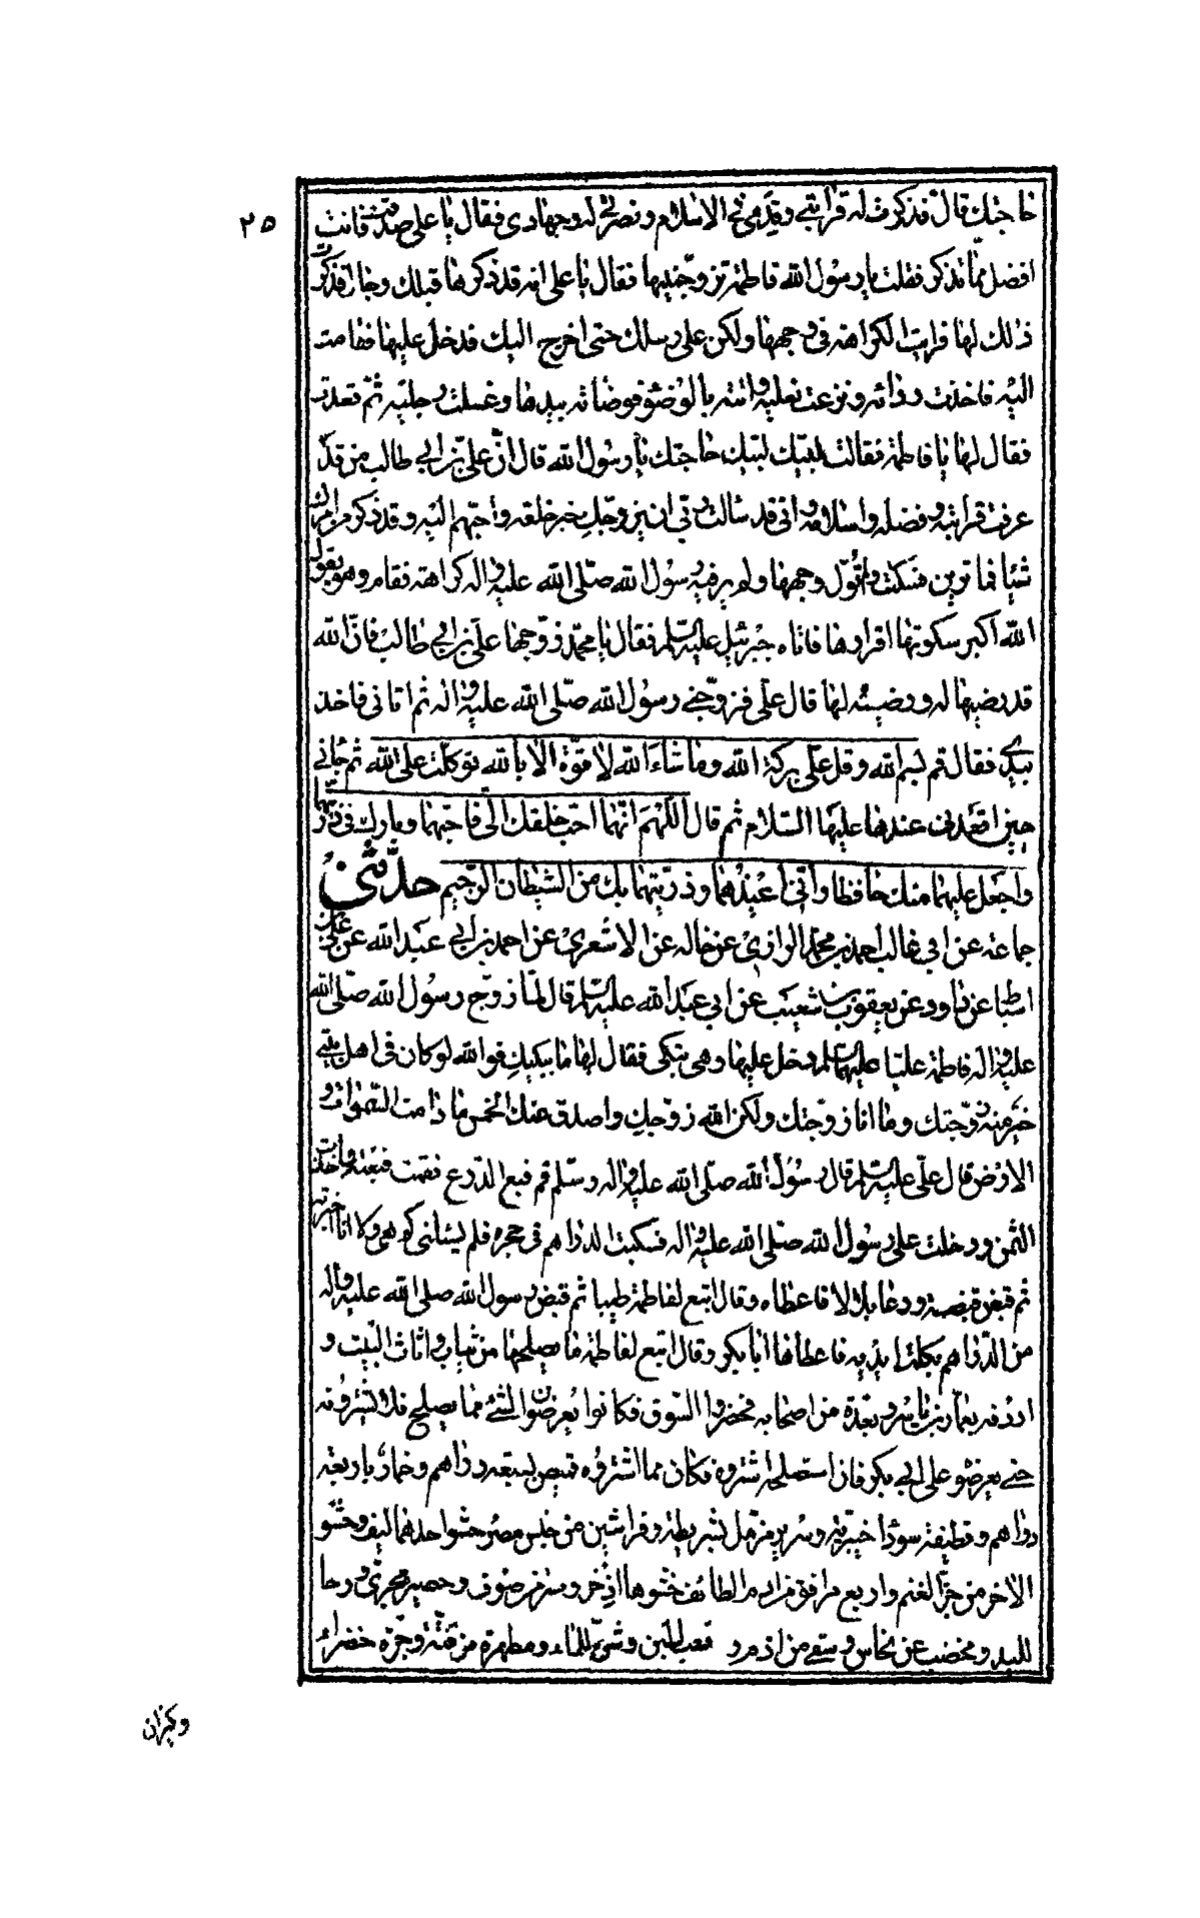 ٢٥
حاجتك قال فذكرت له قرابتي وقدمي في الاسلام ونصرتي له وجهادي فقال يا علي صدقت فانت
افضل مما تذكر فقلت يا رسول الله فاطمة تزوجنيها فقال يا علي انه قد ذكرها قبلك رجال فذكرت
ذلك لها فرايت الكراهة في وجهها ولكن على رسلك حتى اخرج اليك فدخل عليها فقامت
اليه فاخذت ردائه ونزعت نعليه واتته بالوضوء فوضاته بيدها وغسلت رجليه ثم قعدت
فقال لها يا فاطمة فقالت لبيك لبيك حاجتك يا رسول الله قال ان علي بن ابي طالب من قد
عرفت قرابته وفضله واسلامه واني قد سالت ربي ان يزوجك خير خلقه واحبهم اليه وقد ذكر من امرك
شيئا فما ترين فسكتت ولم تول وجهها ولم ير فيه رسول الله صلى الله عليه واله كراهة فقام وهو يقول
الله اكبر سكوتها اقرارها فاتاه جبرئيل عليه السلم فقال يا محمد زوجها علي بن ابي طالب فان الله
قد رضيها له ورضيه لها قال علي فزوجني رسول الله صلى الله عليه واله ثم اتاني فاخذ
بيدي فقال قم بسم الله وقل على بركة الله وما شاء الله لا قوة الا بالله توكلت على الله ثم جائني
حين اقعدني عندها عليها السلام ثم قال اللهم انهما احب خلقك الي فاحبهما وبارك في ذريتهما
واجعل عليهما منك حافظا واني اعيذهما وذريتهما بك من الشيطان الرجيم حدثني
جماعة عن ابي غالب احمد بن محمد الرازي عن خاله عن الاشعري عن احمد بن ابي عبد الله عن علي بن
اسباط عن داود عن يعقوب بن شعيب عن ابي عبد الله عليه السلم قال لما زوج رسول الله صلى الله
عليه واله فاطمة عليا عليهما السلم دخل عليها وهي تبكي فقال لها ما يبكيك فوالله لو كان في اهل بيتي
خير منه زوجتك وما انا زوجتك ولكن الله زوجك واصدق عنك الخمس ما دامت السموات و
الارض قال علي عليه السلم قال رسول الله صلى الله عليه واله وسلم قم فبع الدرع فقمت فبعته واخذت
الثمن ودخلت على رسول الله صلى الله عليه واله فسكبت الدراهم في حجره فلم يسئلني كم هي ولا انا اخبرته
ثم قبض قبضة ودعا بلالا فاعطاه وقال ابتع لفاطمة طيبا ثم قبض رسول الله صلى الله عليه واله
من الدراهم بكلتا يديه فاعطاها ابا بكر وقال ابتع لفاطمة ما يصلحها من ثياب واثاث البيت و
اردفه بعمار بن ياسر وبعدة من اصحابه فحضروا السوق فكانوا يعرضون الشئ مما يصلح فلا يشترونه
حتى يعرضوه على ابي بكر فان استصلحه اشتروه فكان مما اشتروه قميص بسبعة دراهم وخمار باربعة
دراهم وقطيفة سودا خيبرية وسرير مزمل بشريطة وفراشين من خيش مصر حشو احدهما ليف وحشو
الاخر من جز الغنم واربع مرافق من ادم الطائف حشوها اذخر وستر من صوف وحصير هجري ورحا
لليد ومخضب من نحاس وسقى من ادم و قعب للبن وشن للماء ومطهرة مزفتة وجرة خضراء
وكيزان